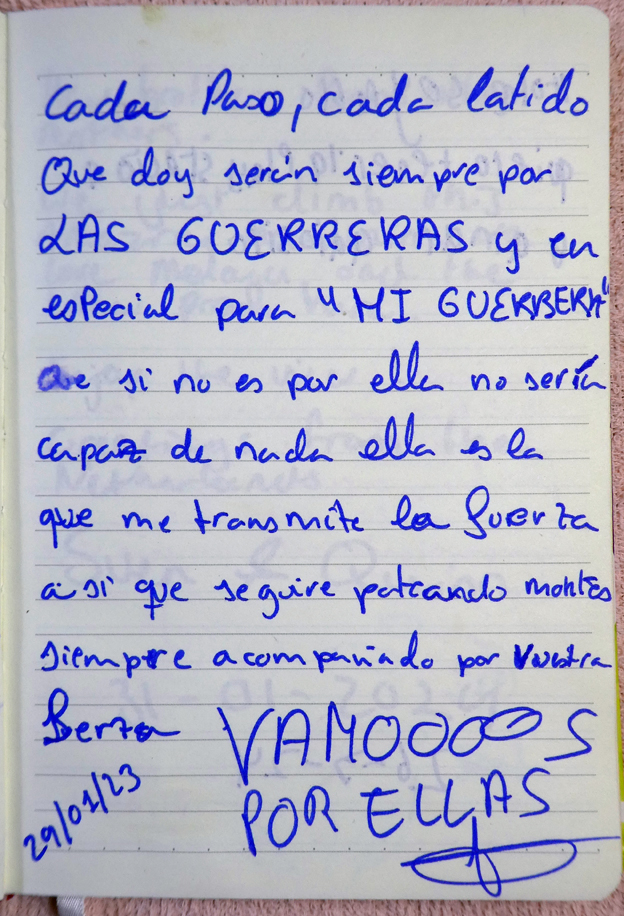 Cada Paso, cada latido
Que doy serán siempre por
LAS GUERRERAS y en
especial para "MI GUERRERA"
Que si no es por ella no sería
capaz de nada ella es la
que me transmite la fuerza
a si que seguire pateando montes
siempre acompañado por vuestra
fuerza VAMOOOOS
POR ELLAS
29/01/23